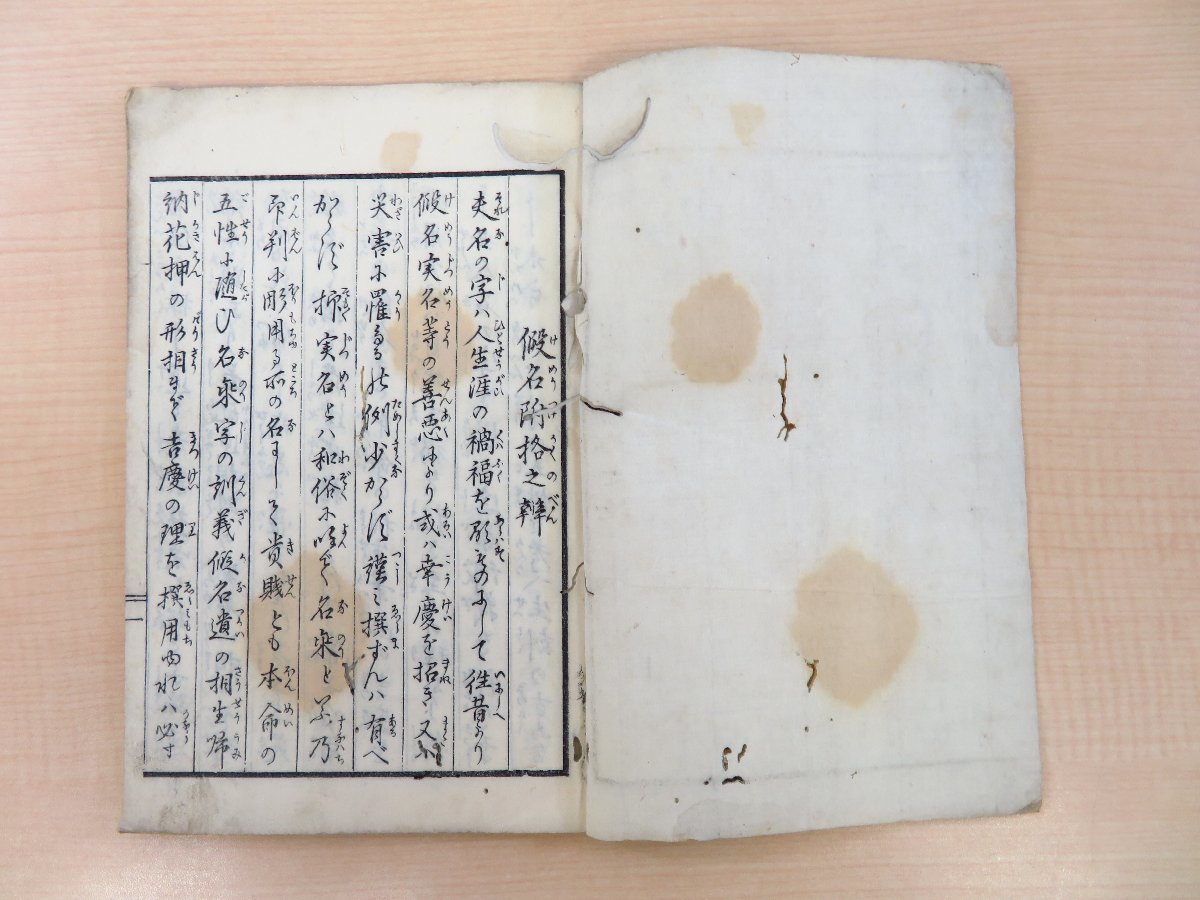 假名附格之辨
夫名の字ハ人生涯の禍福を顕ものにして徃昔より
假名実名等の善悪により或ハ幸慶を招き又ハ
災害に罹るの例少からず謹で撰ずんハ有べ
からず 抑実名とハ和俗に呼で名乘と云乃
印判に彫用る所の名にして貴賎とも本命の
五性に随ひ名乘字の訓義假名遣の相生帰
納花押の形相まで吉慶の理を撰用ゆれハ必ず